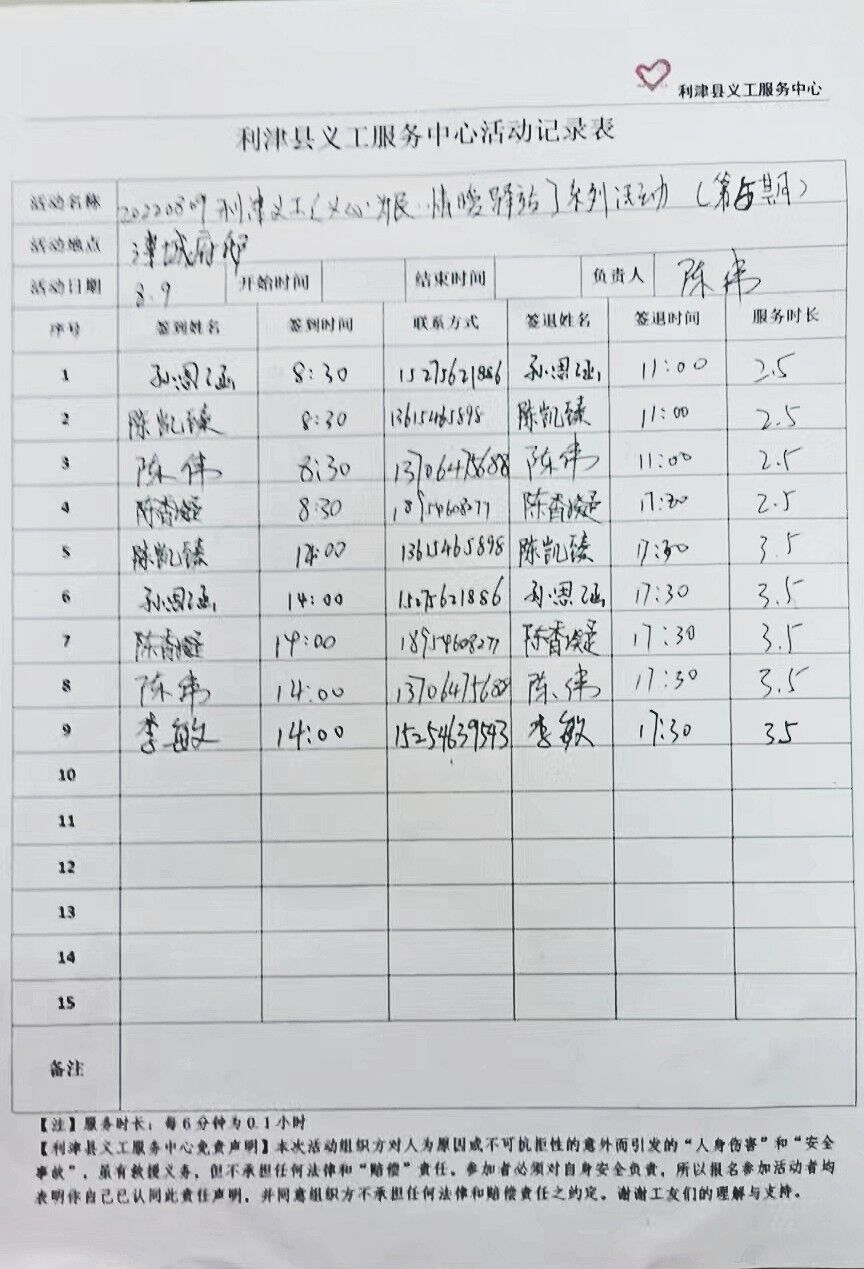 利津县义工服务中心
利津县义工服务中心活动记录表
活动名称 20220809 利津义工 系列活动 (第5期)
活动地点 津城府邸
活动日期 8.9 开始时间 结束时间 负责人 陈伟
序号 签到姓名 签到时间 联系方式 签退姓名 签退时间 服务时长
1 孙恩涵 8:30 15275621886 孙恩涵 11:00 2.5
2 陈凯臻 8:30 13615465898 陈凯臻 11:00 2.5
3 陈伟 8:30 13706475688 陈伟 11:00 2.5
4 陈香凝 8:30 18954608277 陈香凝 2.5
5 陈凯臻 14:00 13615465898 陈凯臻 17:30 3.5
6 孙恩涵 14:00 15275621886 孙恩涵 17:30 3.5
7 陈香凝 14:00 18954608277 陈香凝 17:30 3.5
8 陈伟 14:00 13706475688 陈伟 17:30 3.5
9 李敏 14:00 15254639543 李敏 17:30 3.5
10
11
12
13
14
15
备注
【注】服务时长:每6分钟为0.1小时
【利津县义工服务中心免责声明】本次活动组织方对人为原因或不可抗拒性的意外而引发的“人身伤害”和“安全
事故”,虽有救援义务,但不承担任何法律和“赔偿”责任。参加者必须对自身安全负责,所以报名参加活动者均
表明你自己已认同此责任声明,并同意组织方不承担任何法律和赔偿责任之约定。谢谢工友们的理解与支持。